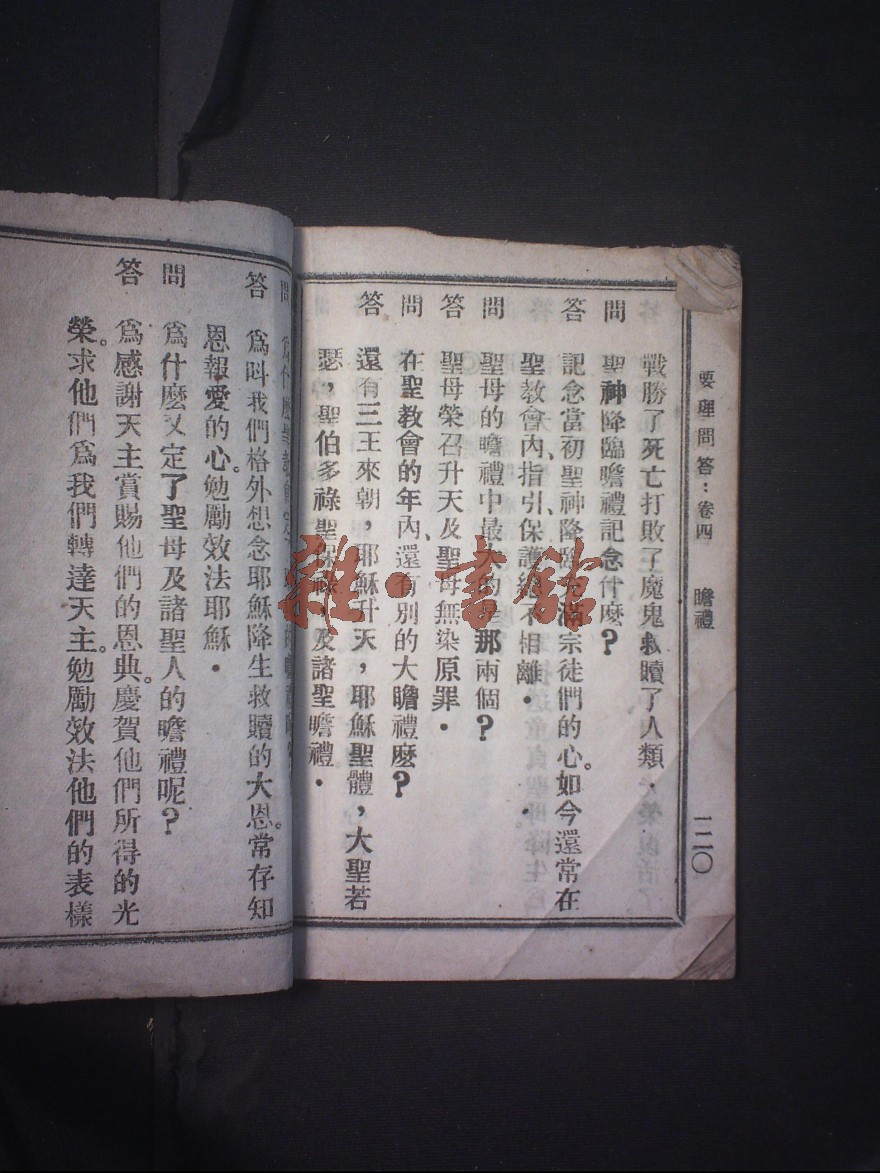 要理問答：卷四 瞻禮 二二〇
戰勝了死亡打敗了魔鬼救贖了人類．
問 聖神降臨瞻禮記念什麼？
答 記念當初聖神降臨充滿宗徒們的心。如今還常在
聖教會內、指引、保護、總不相離．
問 聖母的瞻禮中最大的是那兩個？
答 聖母榮召升天、及聖母無染原罪．
問 在聖教會的年內、還有別的大瞻禮麼？
答 還有三王來朝，耶穌升天，耶穌聖體，大聖若
瑟，聖伯多祿聖保祿，及諸聖瞻禮．
問 爲什麼聖教會定
答 爲叫我們格外想念耶穌降生救贖的大恩。常存知
恩報愛的心。勉勵效法耶穌．
問 爲什麼又定了聖母及諸聖人的瞻禮呢？
答 爲感謝天主賞賜他們的恩典。慶賀他們所得的光
榮。求他們爲我們轉達天主。勉勵效法他們的表樣
雜·書館